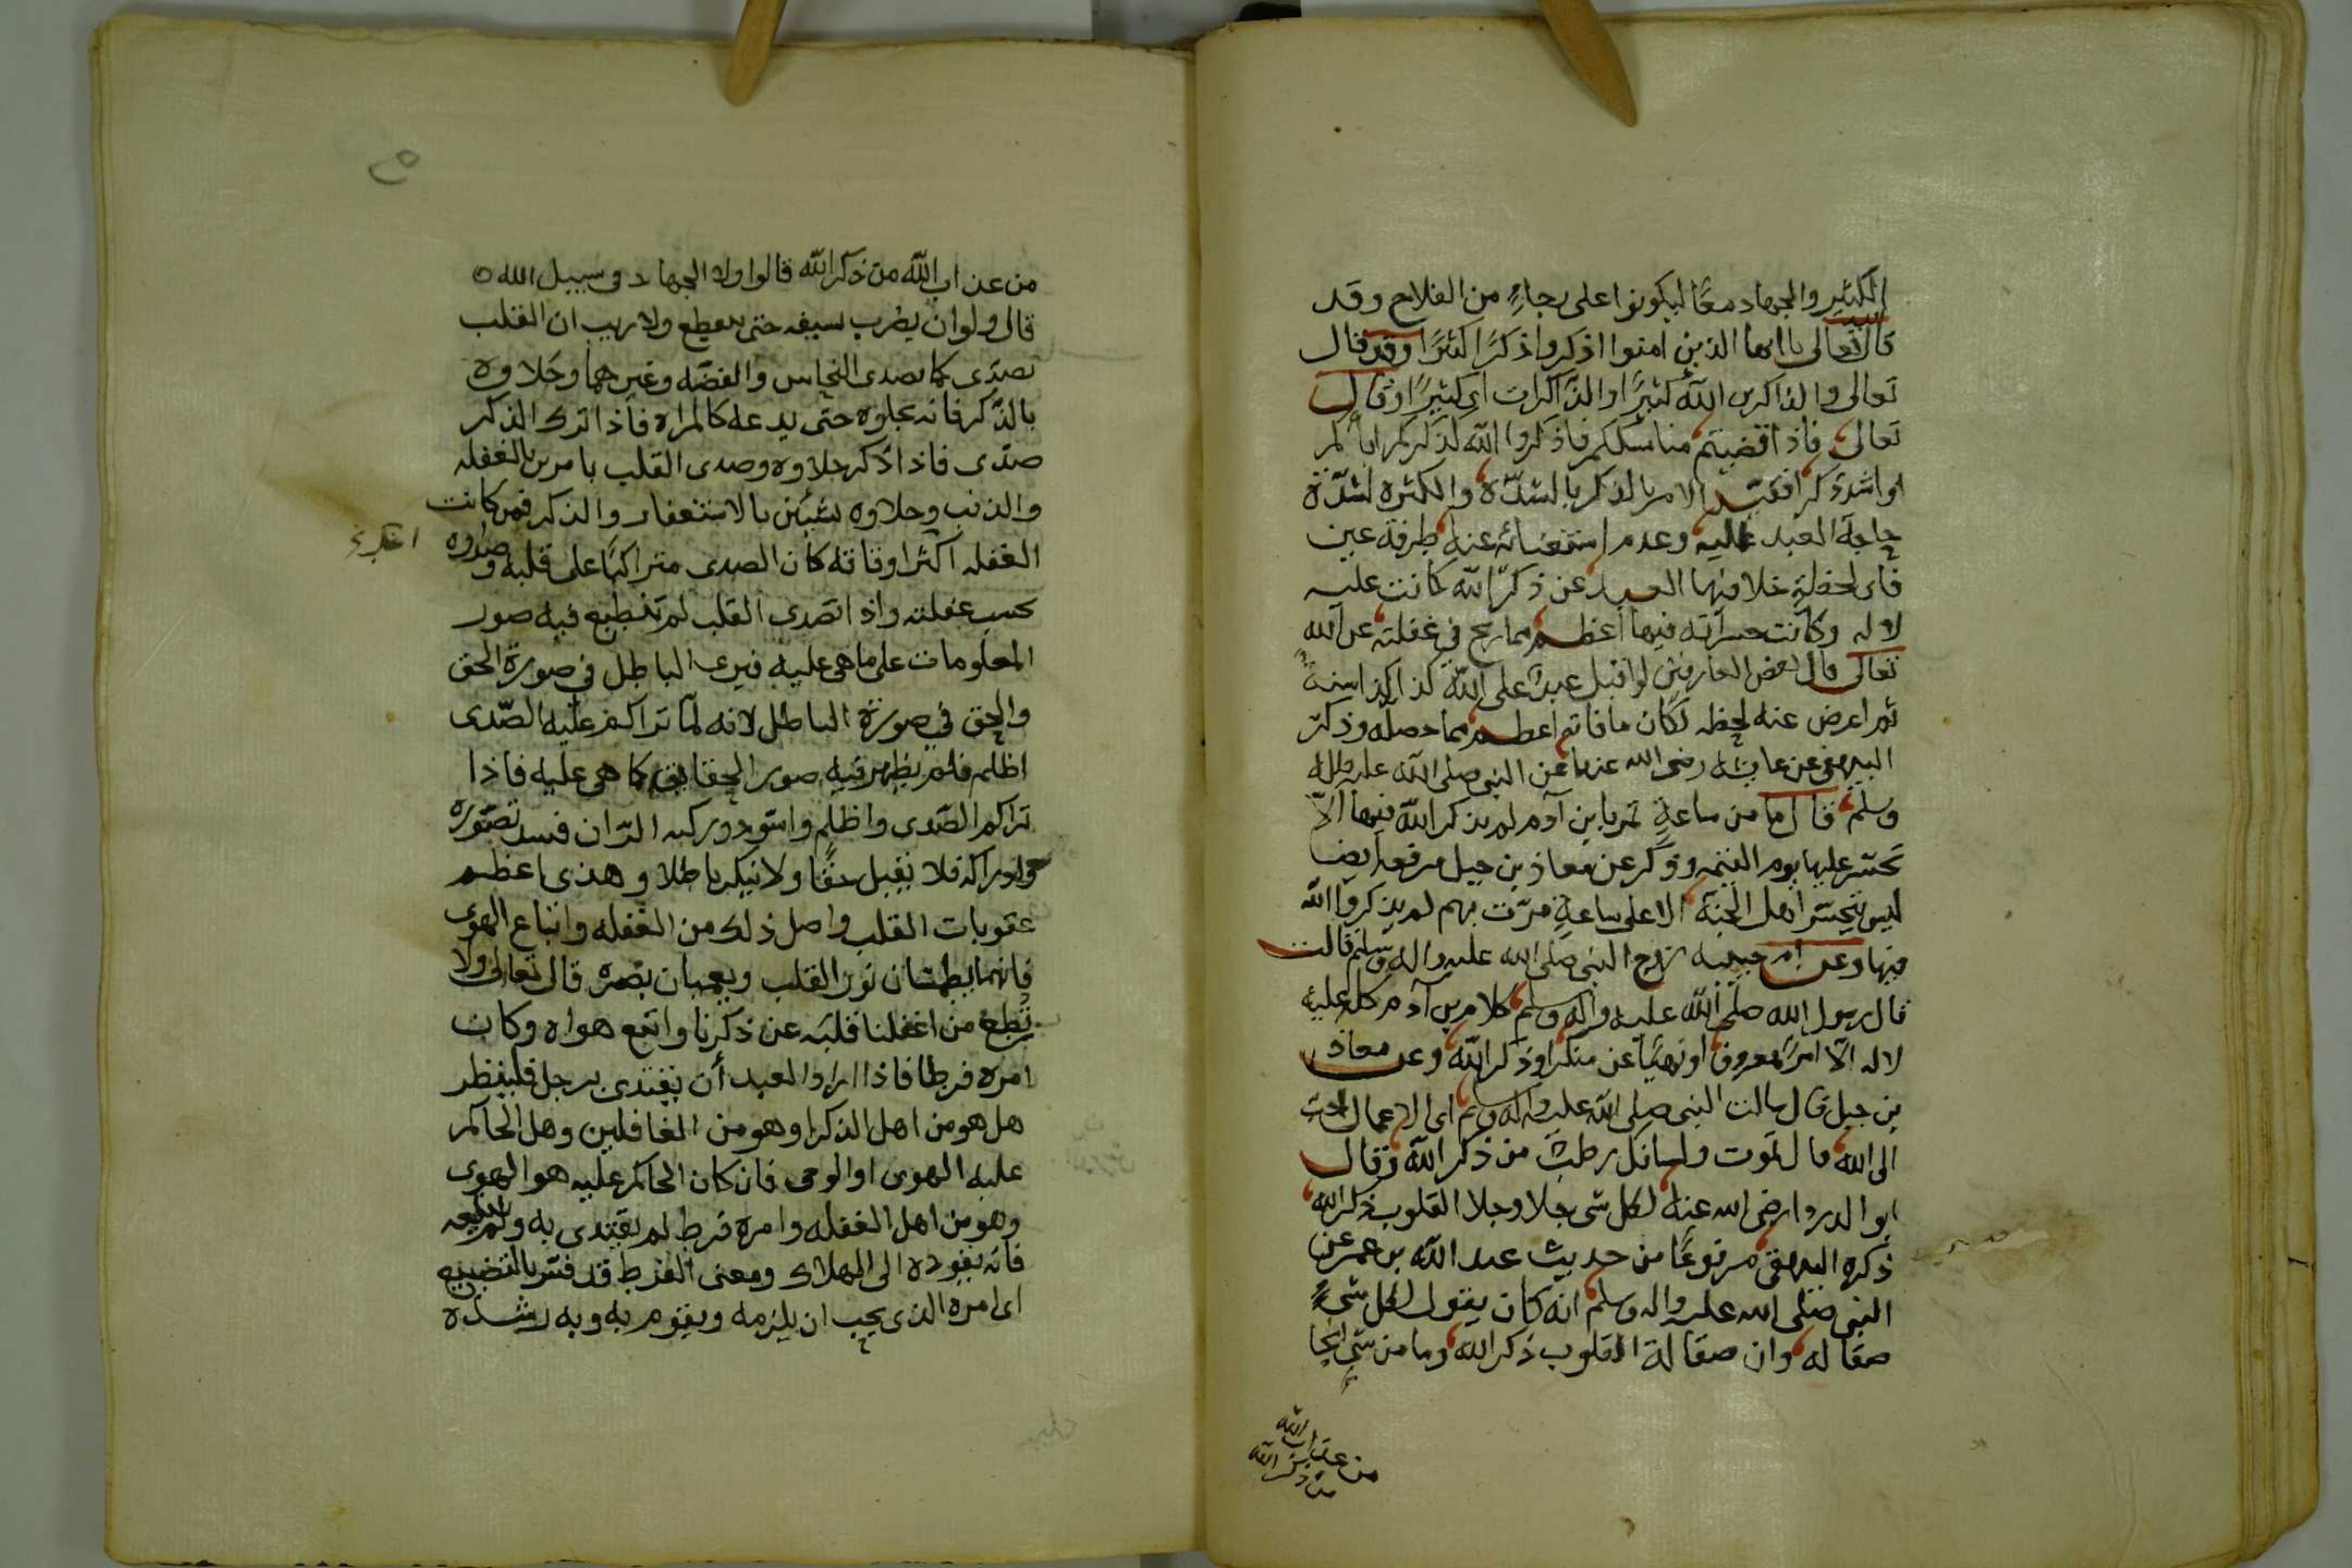 الكثير والجهاد معًا ليكونوا على رجاءٍ من الفلاح وقد
قال الله تعالى يا ايها الذين امنوا اذكروا ذكرًا كثيرًا وقد قال
تعالى والذاكرين الله كثيرًا والذاكرات اي كثيرًا وقال
تعالى فاذا قضيتم مناسككم فاذكروا الله كذكركم اباكم
او اشد ذكرا فقيد الامر بالذكر بالشدّة والكثره لشدّة
حاجة العبد اليه وعدم استغنائه عنه طرفة عين
فاى لحظةٍ خلا فيها العبد عن ذكر الله كانت عليه
لا له وكانت حسراته فيها اعظم مما ربح في غفلته عن الله
تعالى قال بعض العارفين لو اقبل عبدٌ على الله كذا كذا سنةً
ثم اعرض عنه لحظه لكان ما فاته اعظم مما حصله وذكر
البيهقى عن عايشه رضى الله عنها عن النبى صلى الله عليه واله
وسلم قال ما من ساعةٍ تمر بابن آدم لم يذكر الله فيها الّا
تحسّر عليها يوم القيمه وذكر عن معاذ بن جبل مرفعه ايضا
ليس يتحسّر اهل الجنة الا على ساعةٍ مرّت بهم لم يذكروا الله
فيها وعن ام حبيبه زوج النبى صلى الله عليه واله وسلم قالت
قال رسول الله صلى الله عليه واله وسلم كلام بن آدم كله عليه
لا له الّا امرًا بمعروف او نهيًا عن منكر او ذكر الله وعن معاذ
بن جبل قال سالت النبى صلى الله عليه واله وسلم اى الاعمال احبّ
الى الله قال تموت ولسانك رطبٌ من ذكر الله وقال
ابو الدردا رضى الله عنه لكل شى جلا وجلا القلوب ذكر الله
ذكره البيهقى مرفوعًا من حديث عبد الله بن عمر عن
النبى صلى الله عليه واله وسلم انه كان يقول لكل شىءٍ
صقاله وان صقالة القلوب ذكر الله وما من شى انجا
من عذاب الله
من ذكر الله
من عذاب الله من ذكر الله قالوا ولا الجهاد فى سبيل الله
قال ولو ان يضرب بسيفه حتى ينقطع ولا ريب ان القلب
يصدى كما يصدى النحاس والفضّه وغيرهما وجلاوه
بالذّكر فانه يجلوه حتى يدعه كالمراه فاذا ترك الذكر
صدّى فاذا ذكر جلاوه وصدى القلب بامرين بالغفله
والذنب وجلاوه بشيئين بالاستغفار والذكر فمن كانت
الغفله اكثر اوقاته كان الصدى متراكبًا على قلبه وصداوه
بحسب غفلته واذا اصدى القلب لم تنطبع فيه صور
المعلومات على ما هى عليه فيرى الباطل في صورة الحق
والحق في صورة الباطل لانه لما تراكم عليه الصّدى
اظلم فلم يظهر فيه صور الحقايق كما هى عليه فاذا
تراكم الصّدى واظلم واسّود وركبه الرّان فسد تصوّره
وادراكه فلا يقبل حقًا ولا ينكر باطلا وهذى اعظم
عقوبات القلب واصل ذلك من الغفله واتباع الهوى
فانهما يطمسان نور القلب ويعميان بصره قال تعالى ولا
تُطع من اغفلنا قلبَه عن ذكرنا واتبع هواه وكان
امره فرطا فاذا اراد العبد أن يقتدى برجل فلينظر
هل هو من اهل الذكر او هو من الغافلين وهل الحاكم
عليه الهوى او الوحى فان كان الحاكم عليه هو الهوى
وهو من اهل الغفله وامره فرط لم يقتدى به ولم يتبعه
فانه يقوده الى الهلاك ومعنى الفرط قد فسّر بالتضييع
اى امره الذى يجب ان يلزمه ويقوم به وبه رشده